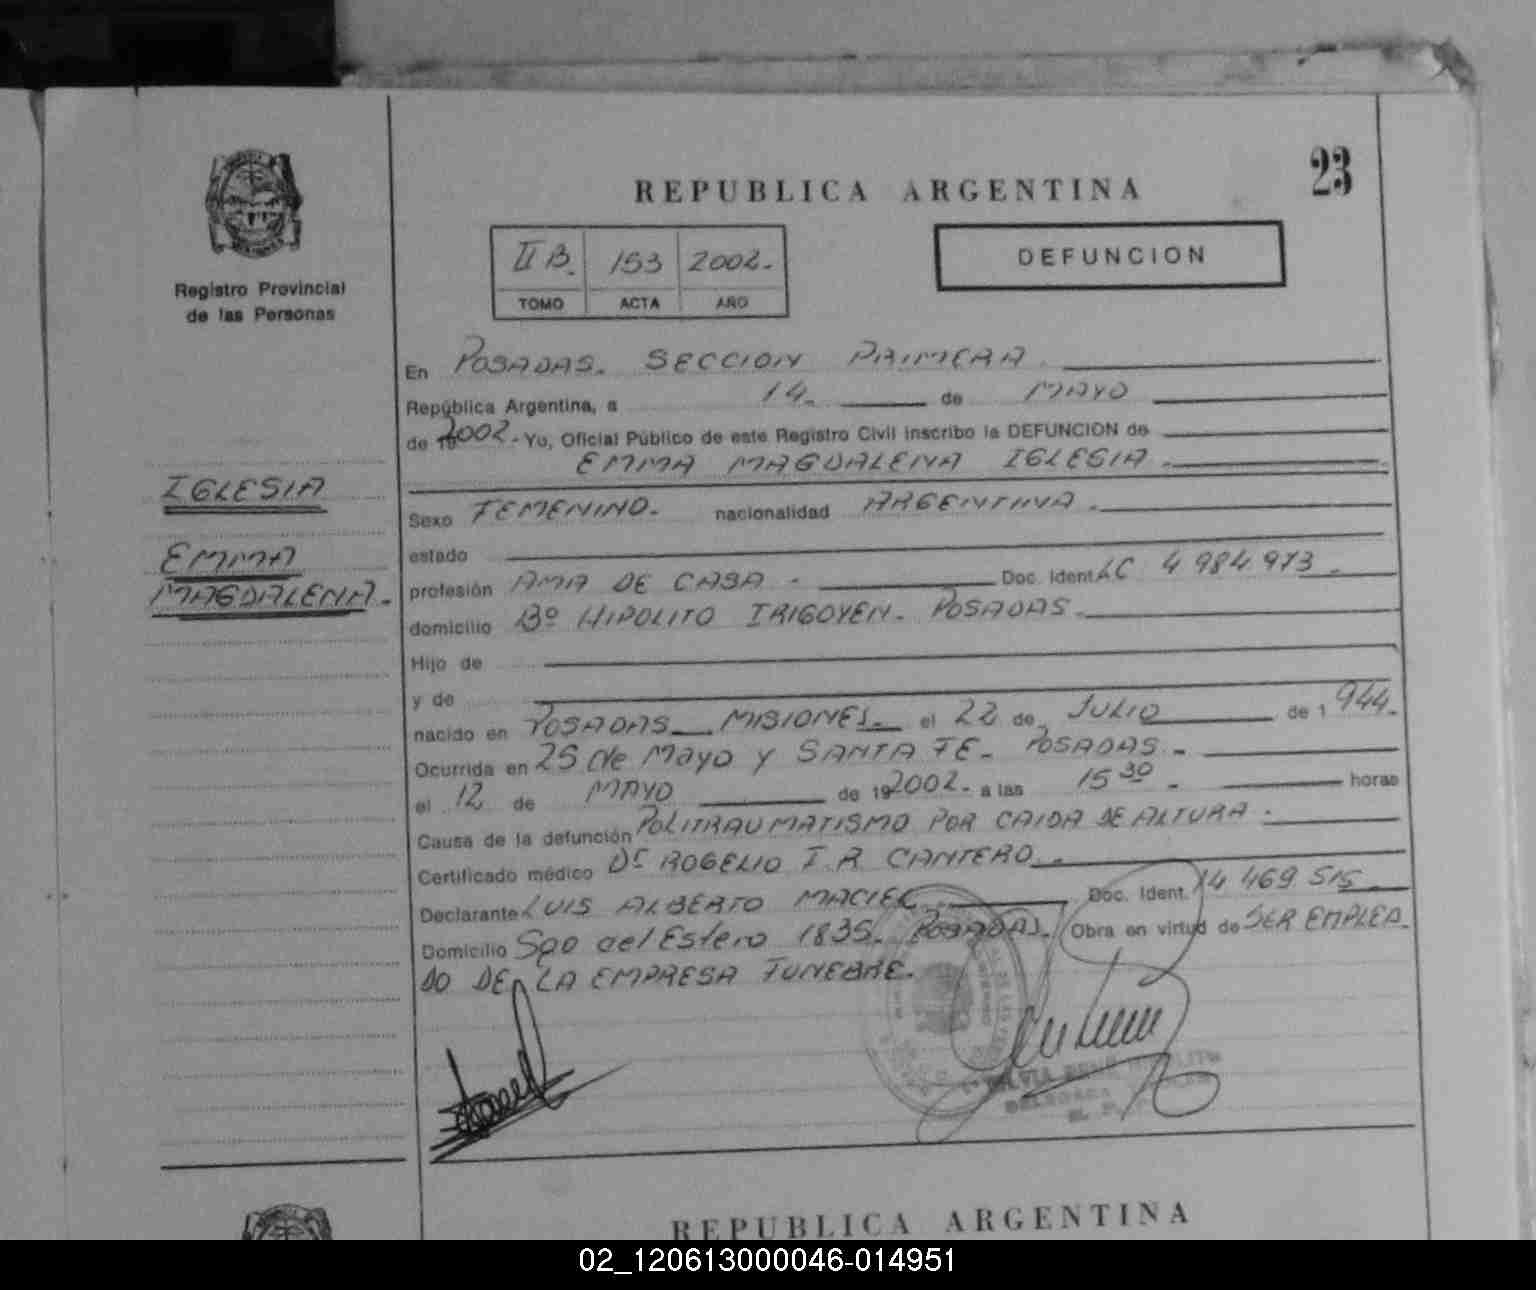 23
REPUBLICA ARGENTINA
Registro Provincial
de las Personas
II B. 153 2002.-
TOMO ACTA AÑO
DEFUNCION
IGLESIA
EMMA
MAGDALENA.-
En POSADAS. SECCION PRIMERA.
República Argentina, a 14.- de MAYO
de 19 2002.- Yo, Oficial Público de este Registro Civil inscribo la DEFUNCION de
EMMA MAGDALENA IGLESIA.
Sexo FEMENINO.- nacionalidad ARGENTINA.-
estado
profesión AMA DE CASA.- Doc. Ident. LC 4 984 973.-
domicilio Bº HIPOLITO IRIGOYEN. POSADAS.-
Hijo de
y de
nacido en POSADAS MISIONES.- el 22 de JULIO de 1 944.
Ocurrida en 25 de Mayo y SANTA FE. POSADAS.-
el 12 de MAYO de 19 2002.- a las 15 30.- horas
Causa de la defunción POLITRAUMATISMO POR CAIDA DE ALTURA.-
Certificado médico Dr ROGELIO I.R CANTERO.-
Declarante LUIS ALBERTO MACIEL. Doc. Ident. 14 469 515
Domicilio Sgo del Estero 1835. POSADAS. Obra en virtud de SER EMPLEA
DO DE LA EMPRESA FUNEBRE.
REPUBLICA ARGENTINA
02_120613000046-014951